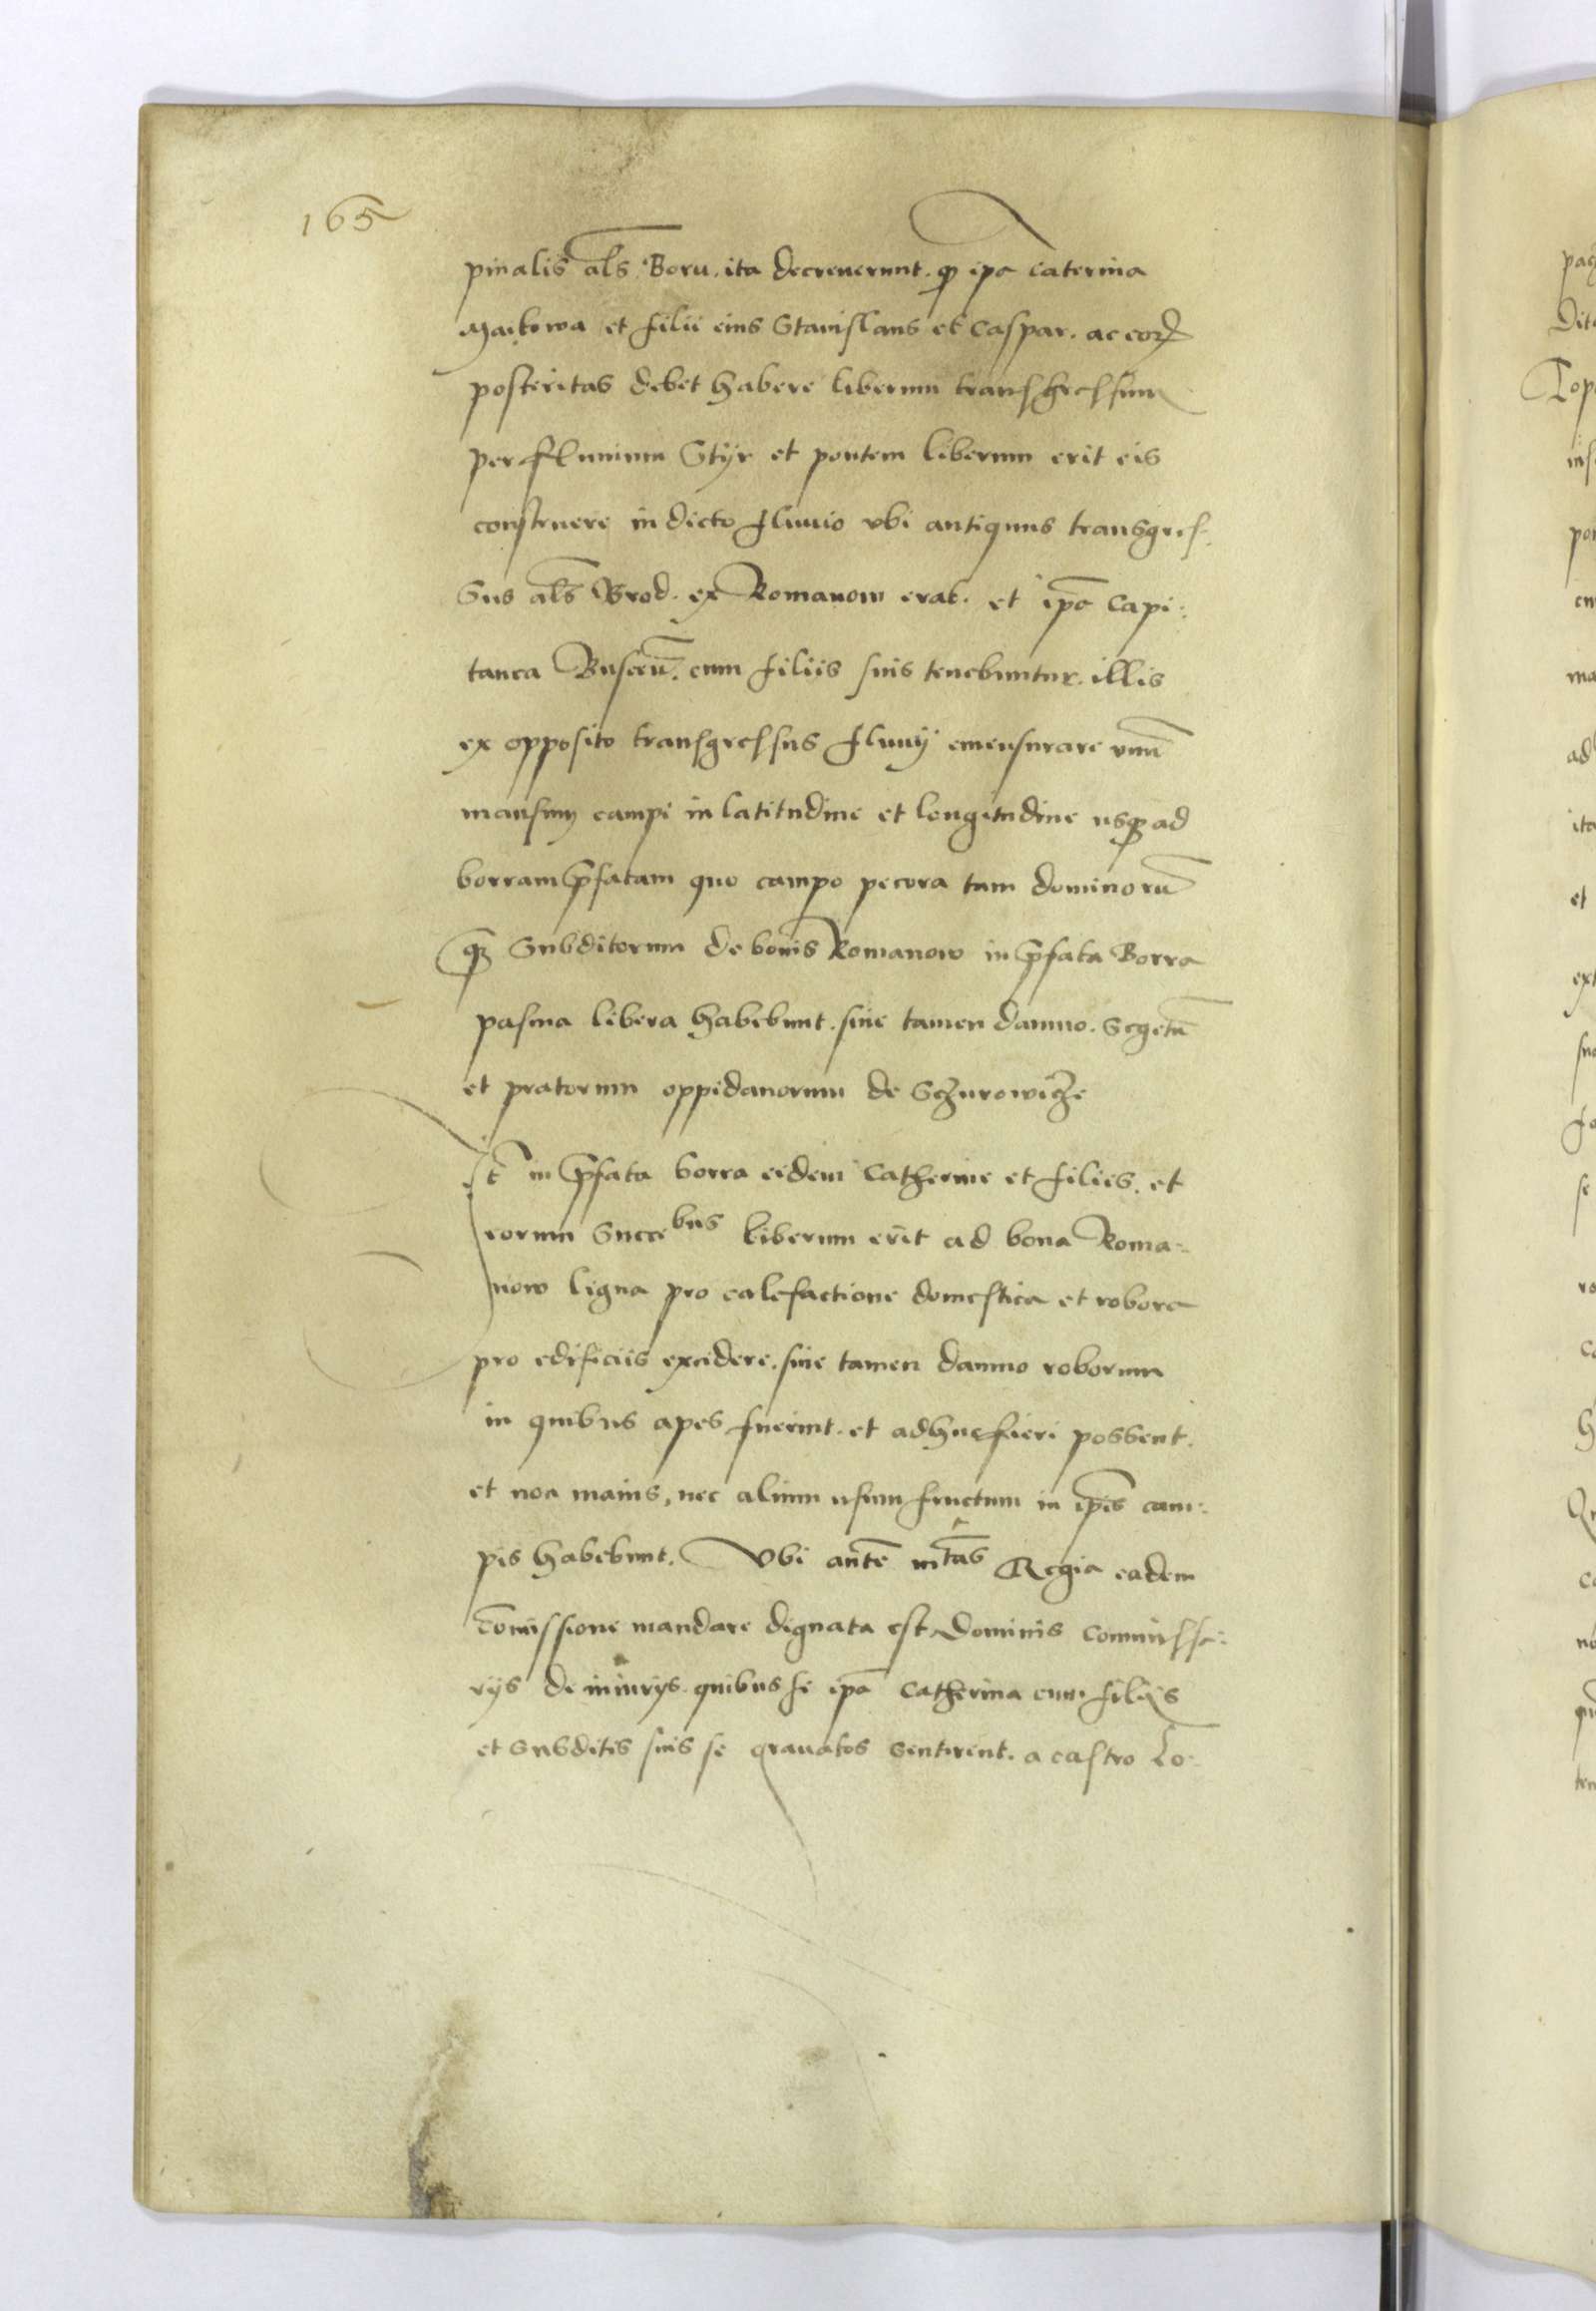 165
pinalis als Boru. ita decreuerunt. ꝙ ipa Caterina
Maikowa et filii eius Stanislaus et Caspar. ac eorꝝ
posteritas debet habere liberum transgressum
per fluuium Styr et pontem liberum erit eis
construere in dicto fluuio vbi antiquus transgres-
sus als Brod. ex Romanow erat. et ipa Capi-
tanea cum filiis suis tenebuntur. illis
ex opposito transgressus fluuij emensurare vnū
mansum campi in latitudine et longitudine usqꝫ ad
borram p̄fatam quo campo pecora tam dominorū
qꝫ Subditorum de bonis Romanow in p̄fata Borra
pascua libera habebunt. sine tamen damno. Segetū
et pratorum oppidanorum de Sczurowicze
It in p̄fata borra eidem Catherine et filiis. et
eorum Succebus liberum erit ad bona Roma-
now ligna pro calefactione domestica et robora
pro edificiis excidere. sine tamen damno roborum
in quibus apes fuerint. et adhuc fieri possent.
et non maius, nec alium usum fructum in ip̄is cam-
pis habebunt. Vbi aut̄e mtas Regia eadem
com̄issione mandare dignata est Dominis Commissa-
rijs de iniurijs. quibus se ipa Catherina cum filijs
et Subditis suis se grauatos sentirent. a castro Lo-
pa
dit
Top
ins
po
ma
ad
ita
et
ext
se
ro
ca